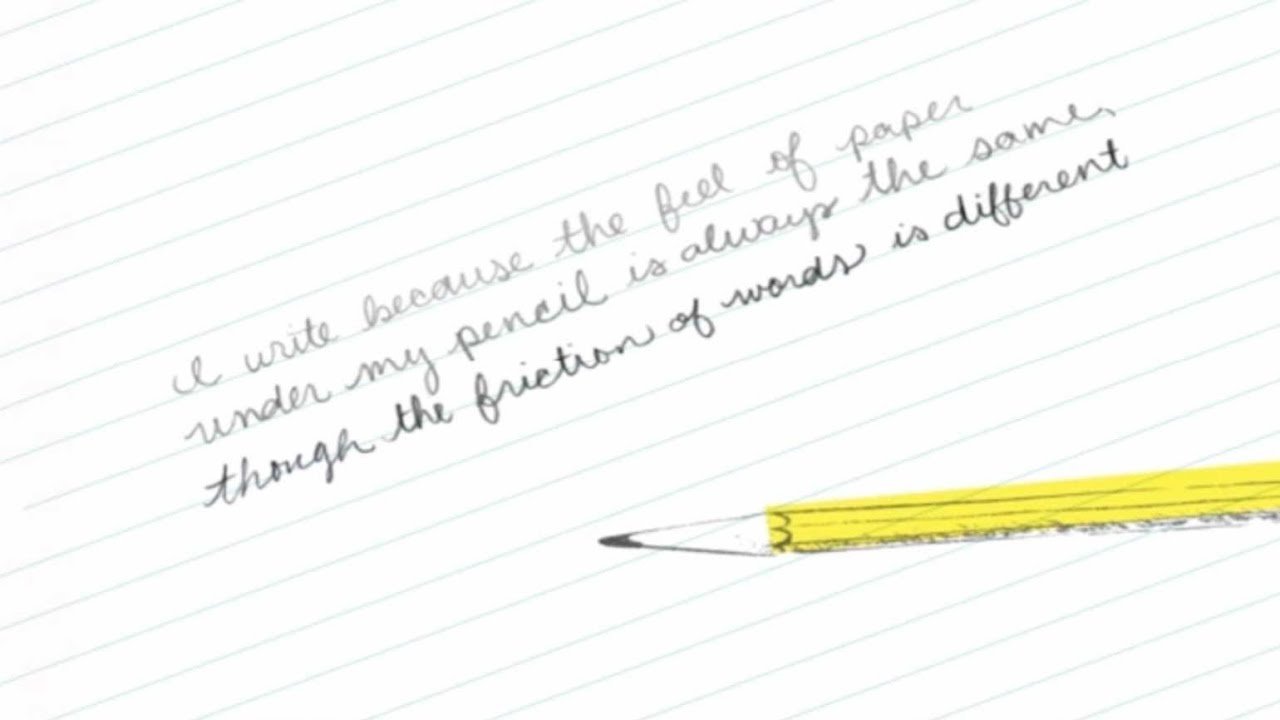 I write because the feel of paper
under my pencil is always the same,
though the friction of words is different